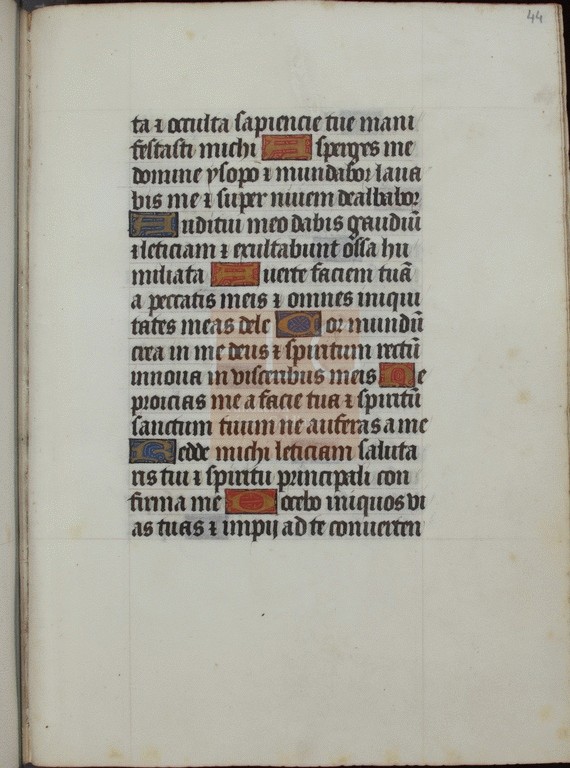 44
ta ⁊ occulta sapiencie tue mani
festasti michi Asperges me
domine ysopo ⁊ mundabor laua
bis me ⁊ super niuem dealbabor
Auditui meo dabis gaudiū
⁊ leticiam ⁊ exultabunt ossa hu
miliata Auerte faciem tuā
a peccatis meis ⁊ omnes iniqui
tates meas dele Cor mundū
crea in me deus ⁊ spiritum rectū
innoua in visceribus meis Ne
proicias me a facie tua ⁊ spiritū
sanctum tuum ne auferas a me
Redde michi leticiam saluta
ris tui ⁊ spiritu principali con
firma me Docebo iniquos vi
as tuas ⁊ impij ad te conuerten